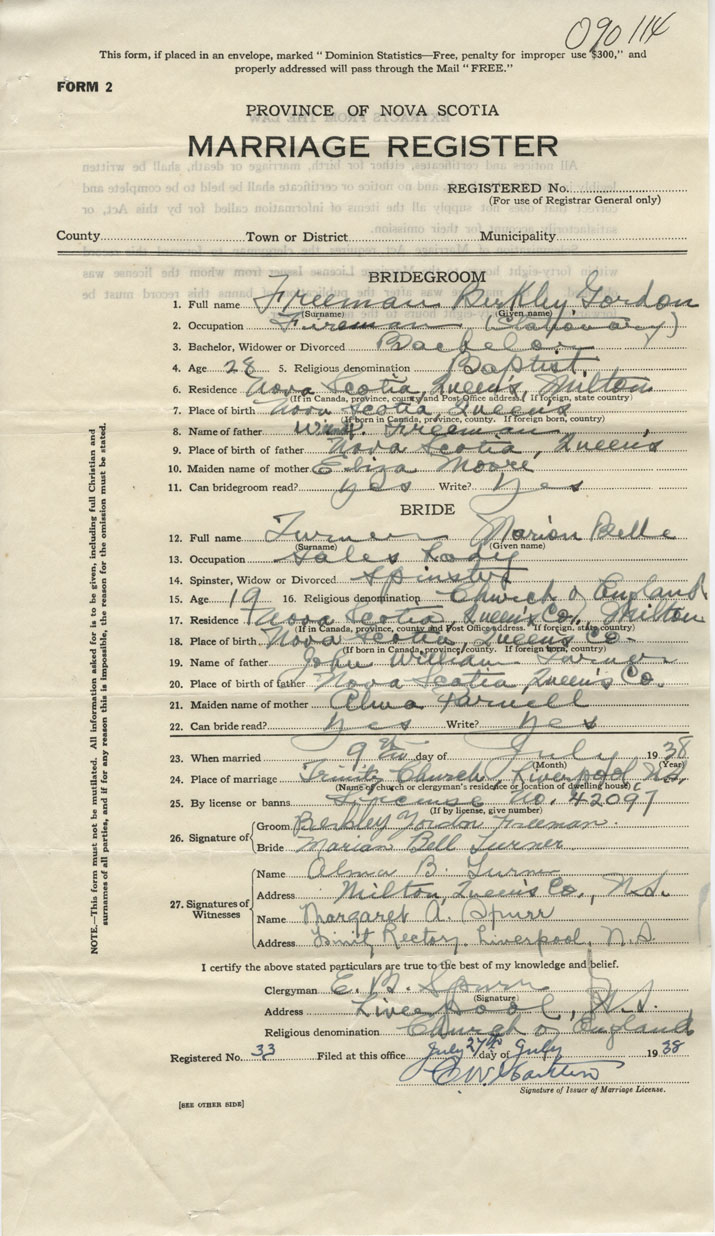 090114
This form, if placed in an envelope, marked "Dominion Statistics—Free, penalty for improper use $300," and
properly addressed will pass through the Mail "FREE."
FORM 2
PROVINCE OF NOVA SCOTIA
MARRIAGE REGISTER
REGISTERED No.
(For use of Registrar General only)
County Town or District Municipality
BRIDEGROOM
1. Full name Freeman Berkley Gordon
(Surname) (Given name)
2. Occupation Fireman (Stationary)
3. Bachelor, Widower or Divorced Bachelor
4. Age 28 5. Religious denomination Baptist
6. Residence Nova Scotia, Queen's, Milton
(If in Canada, province, county and Post Office address. If foreign, state country)
7. Place of birth Nova Scotia, Queen's
(If born in Canada, province, county. If foreign born, country)
8. Name of father Freeman
9. Place of birth of father Nova Scotia, Queen's
10. Maiden name of mother Eliza Moore
11. Can bridegroom read? yes Write? Yes
BRIDE
12. Full name Turner Marion Belle
(Surname) (Given name)
13. Occupation Sales Lady
14. Spinster, Widow or Divorced Spinster
15. Age 19 16. Religious denomination Church of England
17. Residence Nova Scotia, Queen's Co., Milton
(If in Canada, province, county and Post Office address. If foreign, state country)
18. Place of birth Nova Scotia, Queens Co.
(If born in Canada, province, county. If foreign born, country)
19. Name of father John William Turner
20. Place of birth of father Nova Scotia, Queen's Co.
21. Maiden name of mother Alma
22. Can bride read? Yes Write? Yes
23. When married 9th day of July 1938
(Month) (Year)
24. Place of marriage Trinity Church, Liverpool N.S.
(Name of church or clergyman's residence or location of dwelling house)
25. By license or banns License No. 42097
(If by license, give number)
26. Signature of
Groom Berkley Gordon Freeman.
Bride Marian Bell Turner
27. Signatures of Witnesses
Name Alma B. Turner
Address Milton, Queen's Co., N.S.
Name Margaret A. Spurr
Address Trinity Rectory. Liverpool, N.S
I certify the above stated particulars are true to the best of my knowledge and belief.
Clergyman E. B. Spurr
(Signature)
Address Liverpool, N.S.
Religious denomination Church of England
Registered No. 33 Filed at this office July 27th day of July 1938
Signature of Issuer of Marriage License.
[SEE OTHER SIDE]
NOTE.—This form must not be mutilated. All information asked for is to be given, including full Christian and
surnames of all parties, and if for any reason this is impossible, the reason for the omission must be stated.